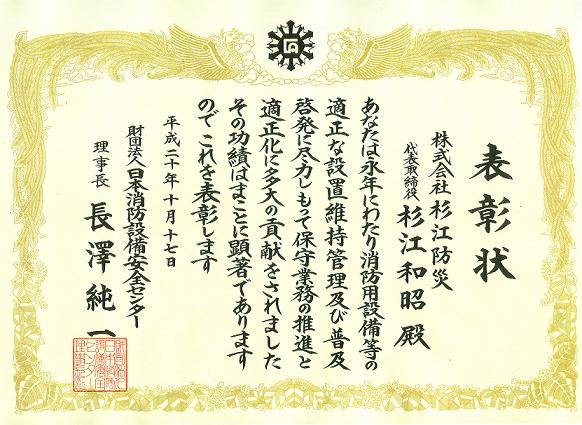 表彰状
株式会社 杉江防災
代表取締役 杉江和昭 殿
あなたは永年にわたり消防用設備等の
適正な設置維持管理及び普及
啓発に尽力しもって保守業務の推進と
適正化に多大の貢献をされました
その功績はまことに顕著であります
のでこれを表彰します
平成二十年十月十七日
財団法人日本消防設備安全センター
理事長 長澤純一